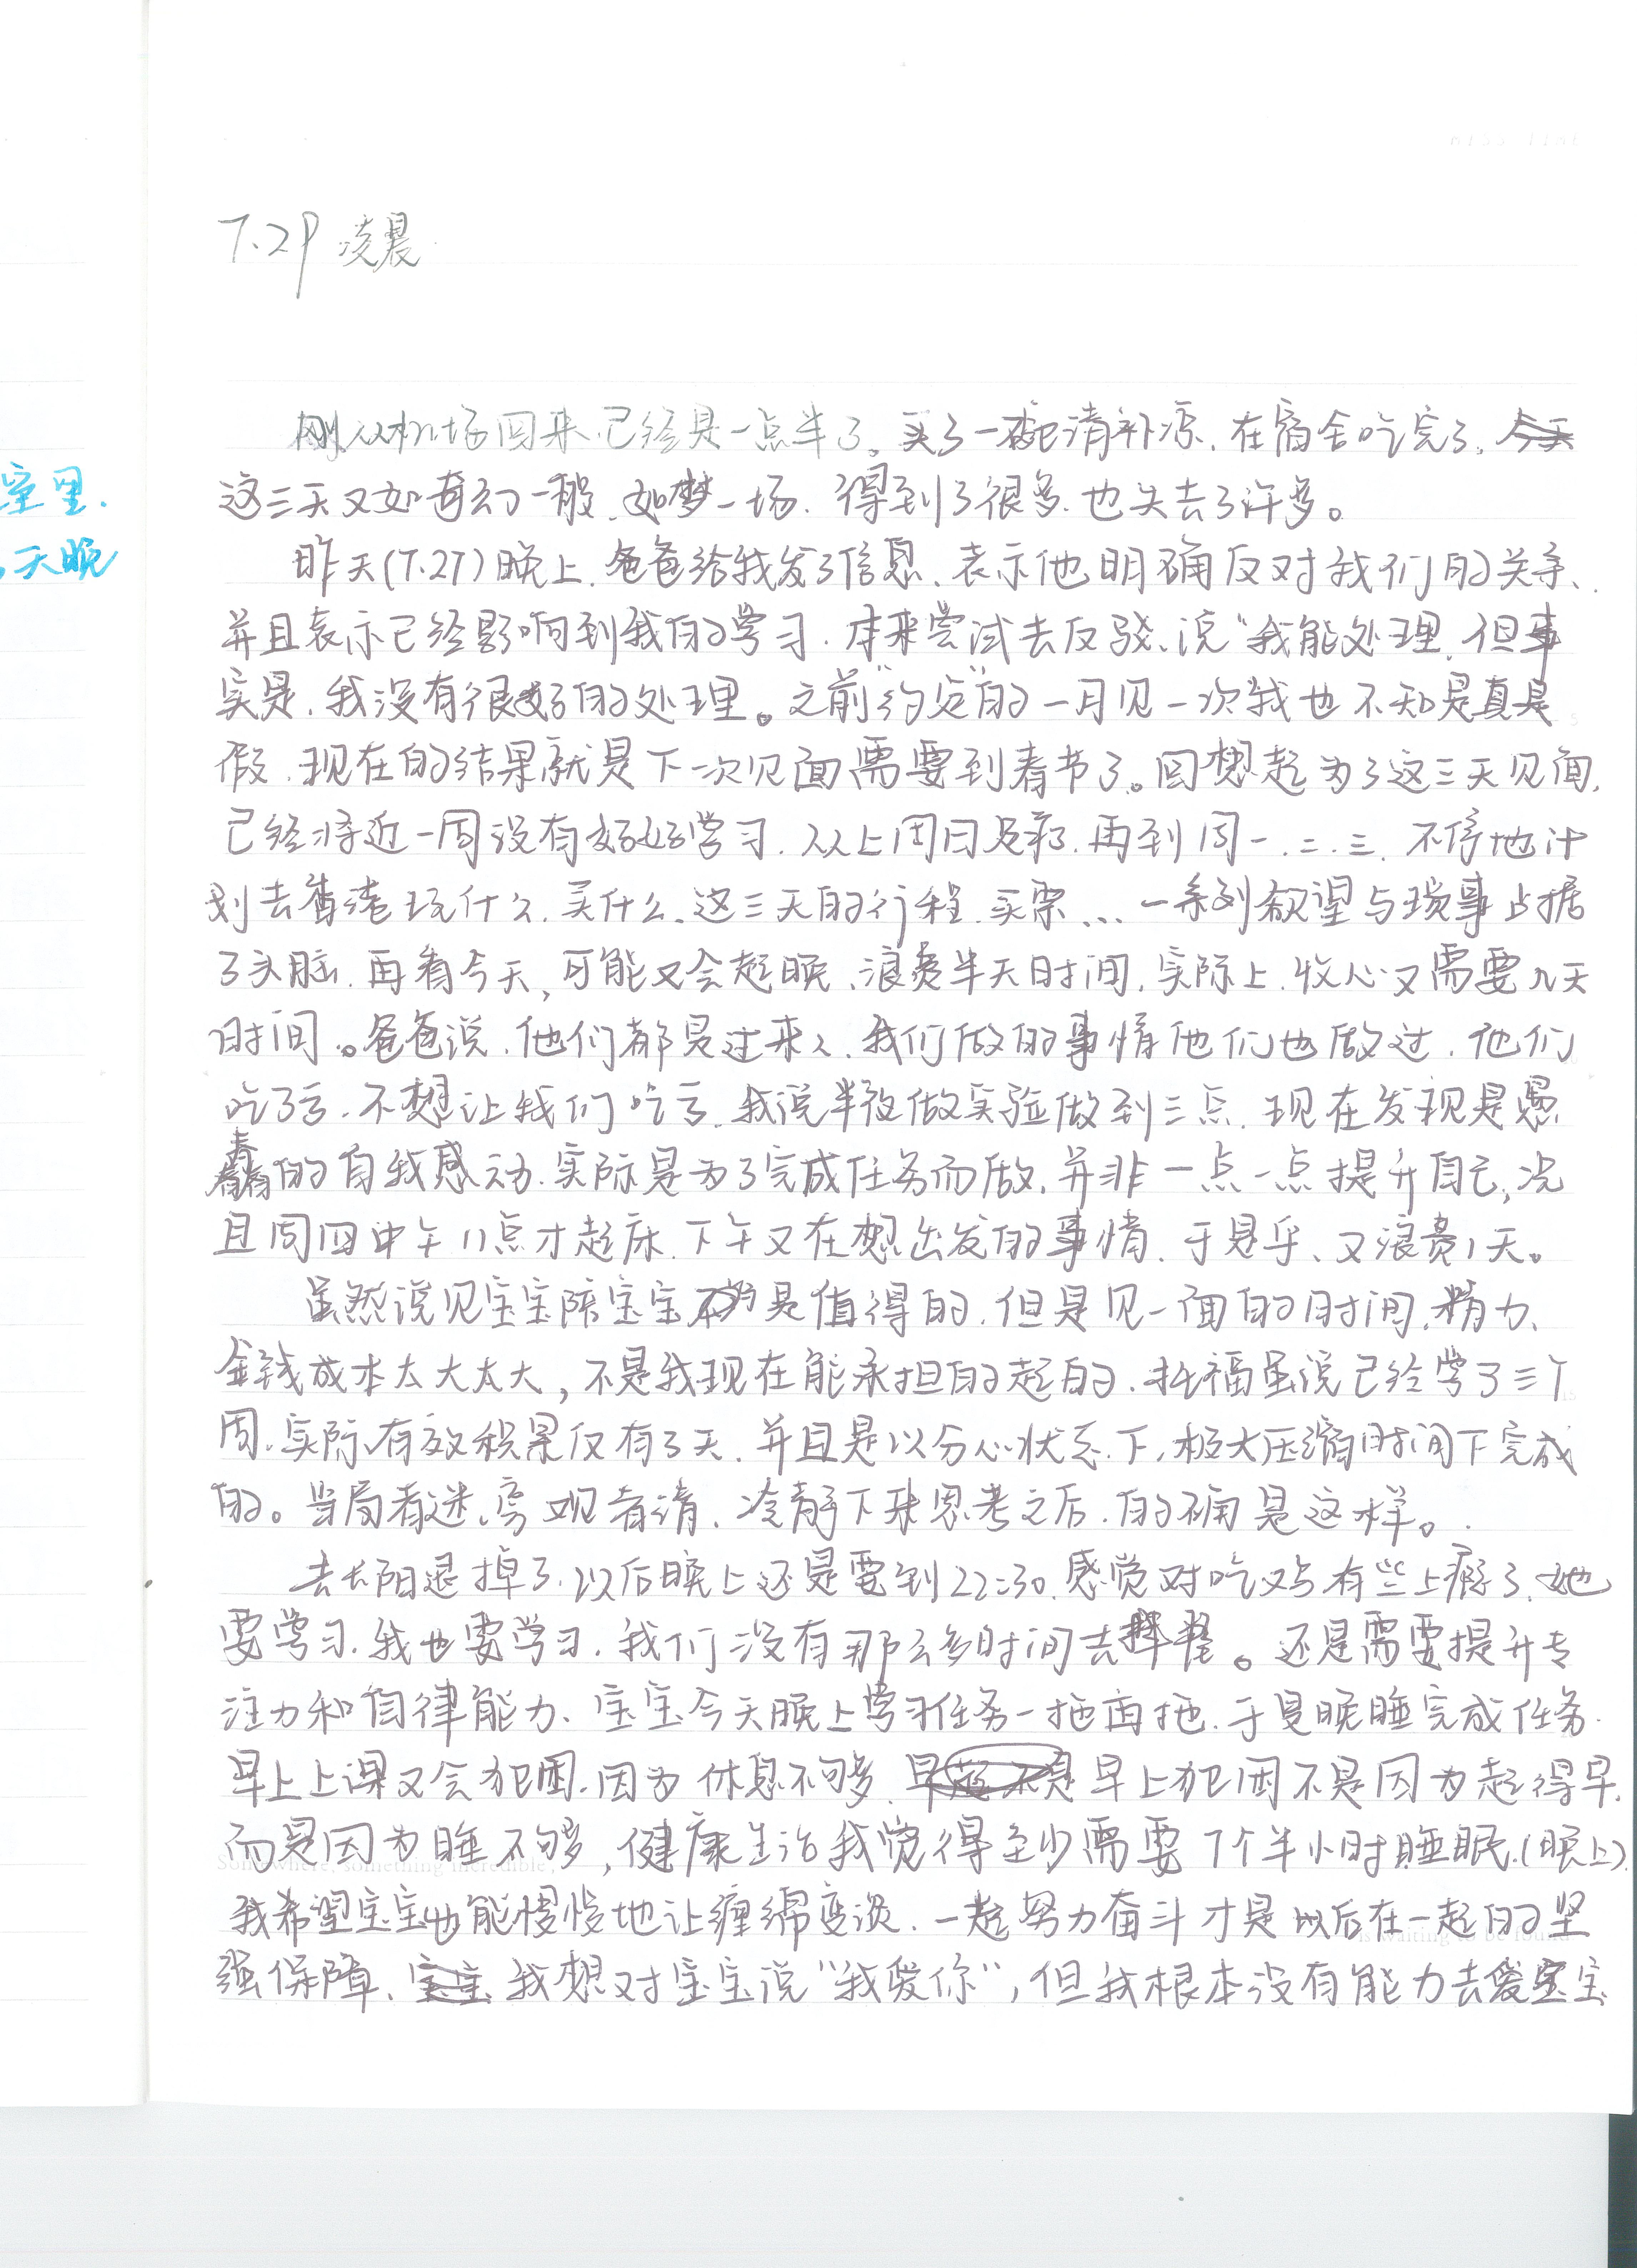 7.29 凌晨
刚从机场回来已经是一点半了。买了一碗清补凉、在宿舍吃完了。
这三天又如奇幻一般、如梦一场、得到了很多、也失去了许多。
昨天(7.27)晚上、爸爸给我发了信息、表示他明确反对我们的关系、
并且表示已经影响到我的学习、本来尝试去反驳、说“我能处理、但事
实是、我没有很好的处理。之前“约定”的一月见一次我也不知是真是
假、现在的结果就是下一次见面需要到春节了。回想起为了这三天见面、
已经将近一周没有好好学习、从上周日足疗、再到周一、二、三、不停地计
划去香港玩什么、买什么、这三天的行程、买票、… 一系列欲望与琐事占据
了头脑、再看今天、可能又会起晚、浪费半天时间、实际上、收心又需要几天
时间。爸爸说、他们都是过来人、我们做的事情他们也做过、他们
吃了亏、不想让我们吃亏、我说半夜做实验做到三点、现在发现是愚
蠢的自我感动、实际是为了完成任务而做、并非一点一点提升自己、况
且周四中午11点才起床、下午又在想出发的事情、于是乎、又浪费1天。
虽然说见宝宝陪宝宝是值得的、但是见一面的时间、精力、
金钱成本太大太大，不是我现在能承担的起的、托福虽说已经学了三个
周、实际有效积累仅有3天、并且是以分心状态下、极大压缩时间下完成
的。当局者迷、旁观者清、冷静下来思考之后、的确是这样。
去长阳退掉了、以后晚上还是要到22:30、感觉对吃鸡有些上瘾了、她
要学习、我也要学习、我们没有那么多时间去挥霍。还是需要提升专
注力和自律能力、宝宝今天晚上学习任务一拖再拖、于是晚睡完成任务、
早上上课又会犯困、因为休息不够、早上犯困不是因为起得早、
而是因为睡不够，健康生活我觉得至少需要7个半小时睡眠、(晚上)、
我希望宝宝也能慢慢地让缠绵变淡、一起努力奋斗才是以后在一起的坚
强保障、我想对宝宝说“我爱你”，但我根本没有能力去爱宝宝
室里.
天晚
Somewhere, something incredible
is waiting to be found